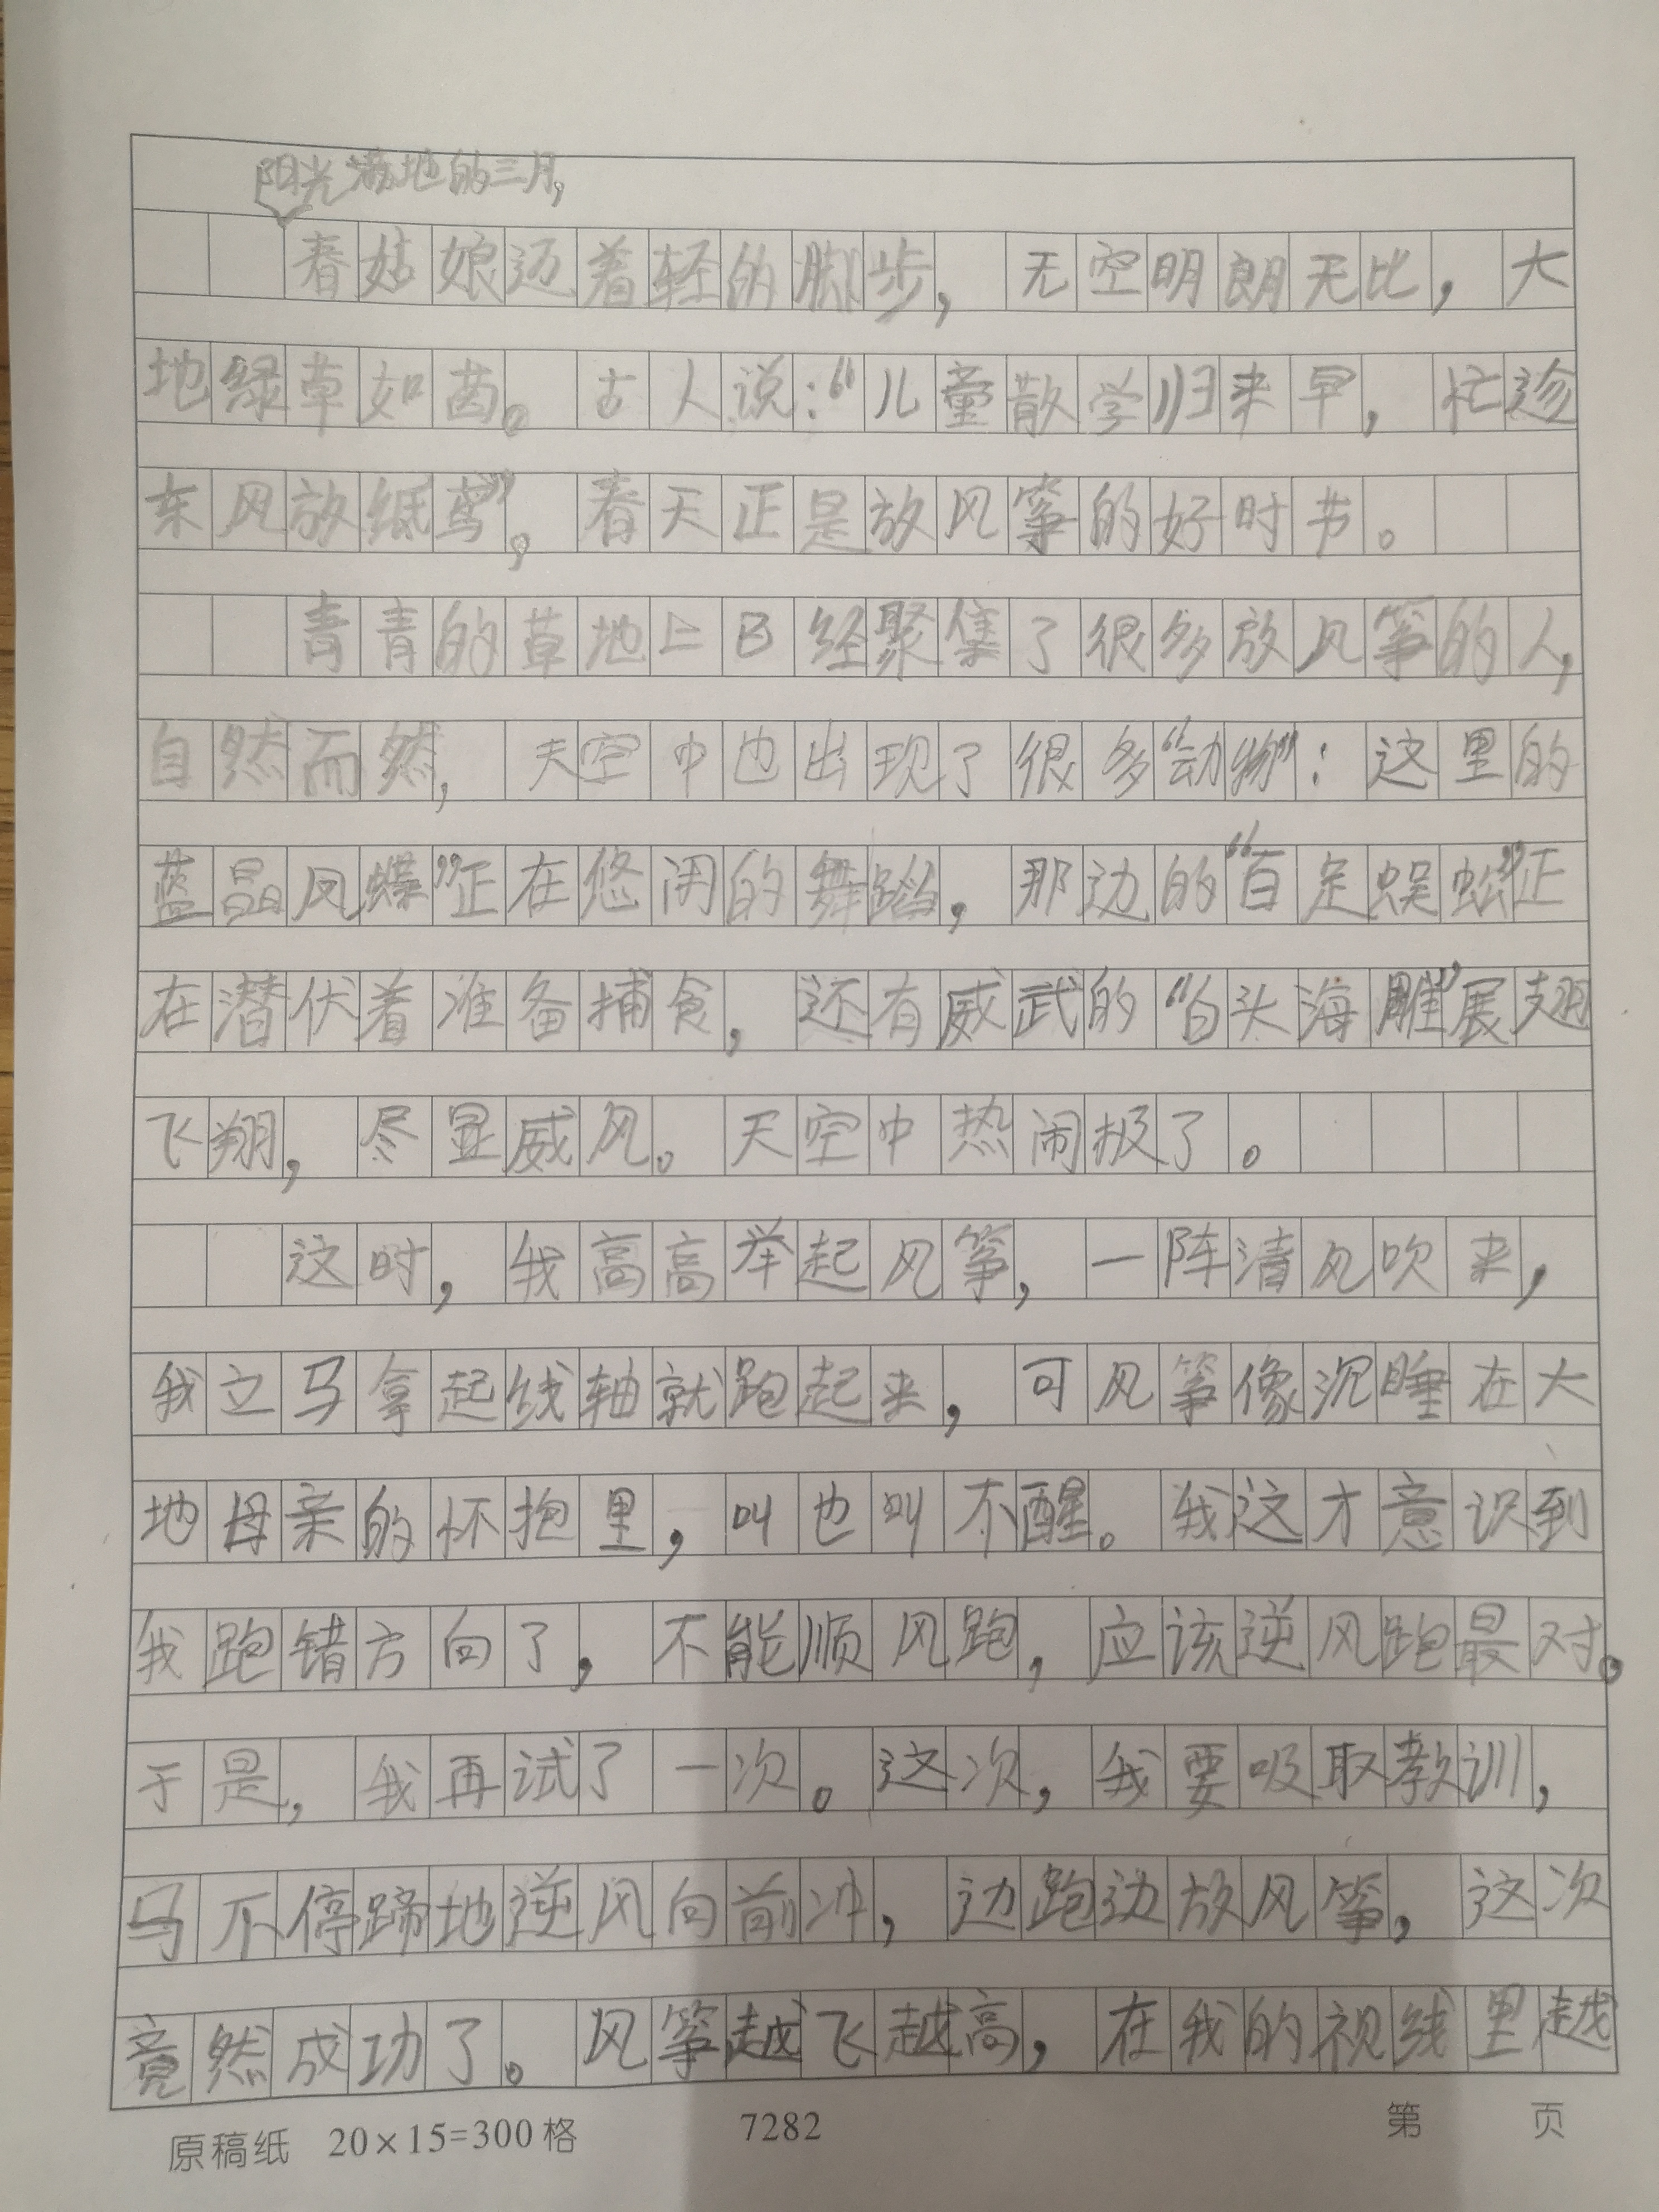 阳光满地的三月,
春姑娘迈着轻的脚步，无空明朗无比，大
地绿草如茵。古人说：“儿童散学归来早，忙诊
东风放纸鸢”，春天正是放风筝的好时节。
青青的草地上已经聚集了很多放风筝的人，
自然而然，天空中也出现了很多“动物”：这里的
蓝晶凤蝶”正在悠闲的舞蹈，那边的“百足蜈蚣”正
在潜伏着准备捕食，还有威武的“白头海雕”展翅
飞翔，尽显威风。天空中热闹极了。
这时，我高高举起风筝，一阵清风吹来，
我立马拿起线轴就跑起来，可风筝像沉睡在大
地母亲的怀抱里，叫也叫不醒。我这才意识到
我跑错方向了，不能顺风跑，应该逆风跑最对。
于是，我再试了一次。这次，我要吸取教训，
马不停蹄地逆风向前冲，边跑边放风筝，这次
竟然成功了。风筝越飞越高，在我的视线里越
原稿纸 20×15=300格 7282 第 页